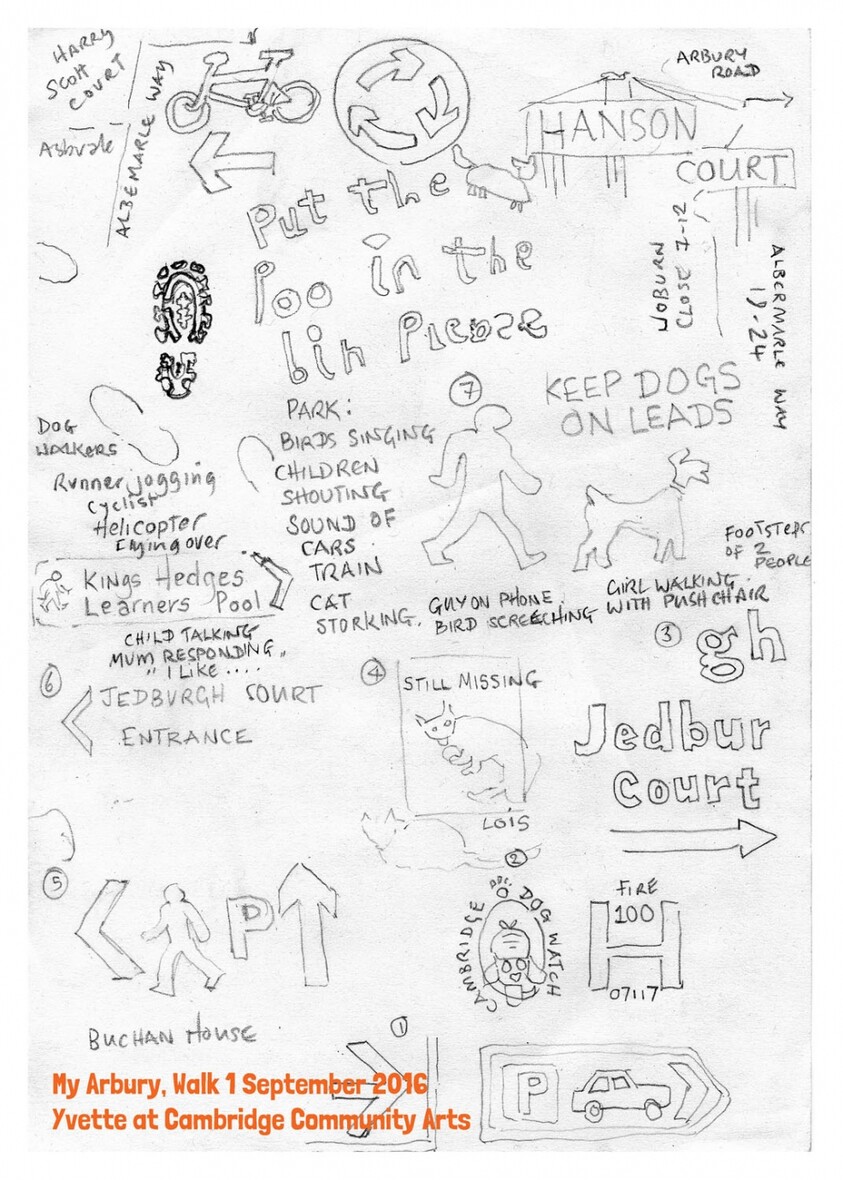 HARRY
SCOTT
COURT
Ashvale
ALBEMARLE WAY
ARBURY
ROAD
HANSON
COURT
WOBURN
CLOSE 7-12
ALBERMARLE WAY
19-24
Put the
Poo in the
bin Please
KEEP DOGS
ON LEADS
7
PARK:
BIRDS SINGING
CHILDREN
SHOUTING
SOUND OF
CARS
TRAIN
CAT
STORKING.
DOG
WALKERS
Runner jogging
cyclist
Helicopter
flying over
Kings Hedges
Learners Pool
CHILD TALKING
MUM RESPONDING,,
"I LIKE ....
GUY ON PHONE.
BIRD SCREECHING
GIRL WALKING
WITH PUSHCHAIR
FOOTSTEPS
OF 2
PEOPLE
3
gh
Jedbur
Court
6
JEDBURGH COURT
ENTRANCE
4
STILL MISSING
LOIS
2
CAMBRIDGE DOG WATCH
FIRE
H
100
07117
5
P
BUCHAN HOUSE
1
P
My Arbury, Walk 1 September 2016
Yvette at Cambridge Community Arts